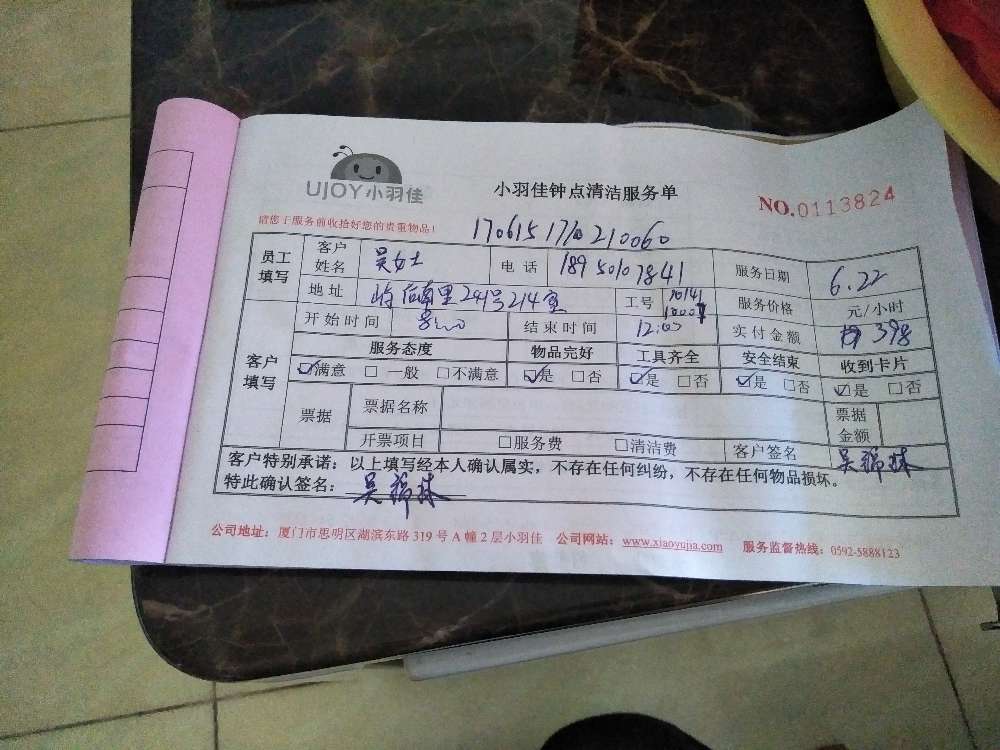 UJOY小羽佳
小羽佳钟点清洁服务单
NO.0113824
请您于服务前收拾好您的贵重物品!
1706151710210060
员工填写 客户姓名 吴女士 电话 18950107841 服务日期 6.22
地址 后南里241号214室 工号 服务价格 元/小时
开始时间 结束时间 12:00 实付金额 398
客户填写 服务态度 物品完好 工具齐全 安全结束 收到卡片
☑满意 □一般 □不满意 ☑是 □否 ☑是 □否 ☑是 □否 ☑是 □否
票据 票据名称 票据金额
开票项目 □服务费 □清洁费 客户签名 吴
客户特别承诺:以上填写经本人确认属实,不存在任何纠纷,不存在任何物品损坏。
特此确认签名: 吴
公司地址:厦门市思明区湖滨东路319号A幢2层小羽佳 公司网站:www.xiaoyujia.com 服务监督热线:0592-5888123